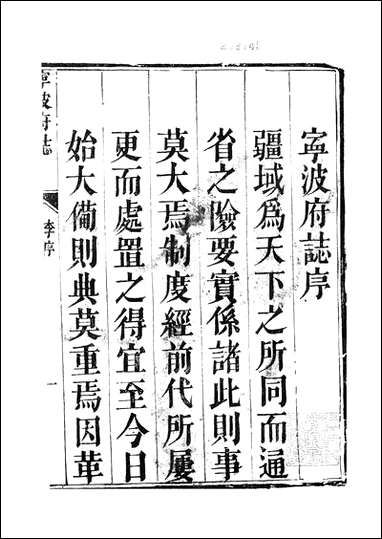 寧波府誌序
疆域為天下之所同而通
省之險要實係諸此則事
莫大焉制度經前代所屢
更而處置之得宜至今日
始大備則典莫重焉因革
寧波府誌
李序
一